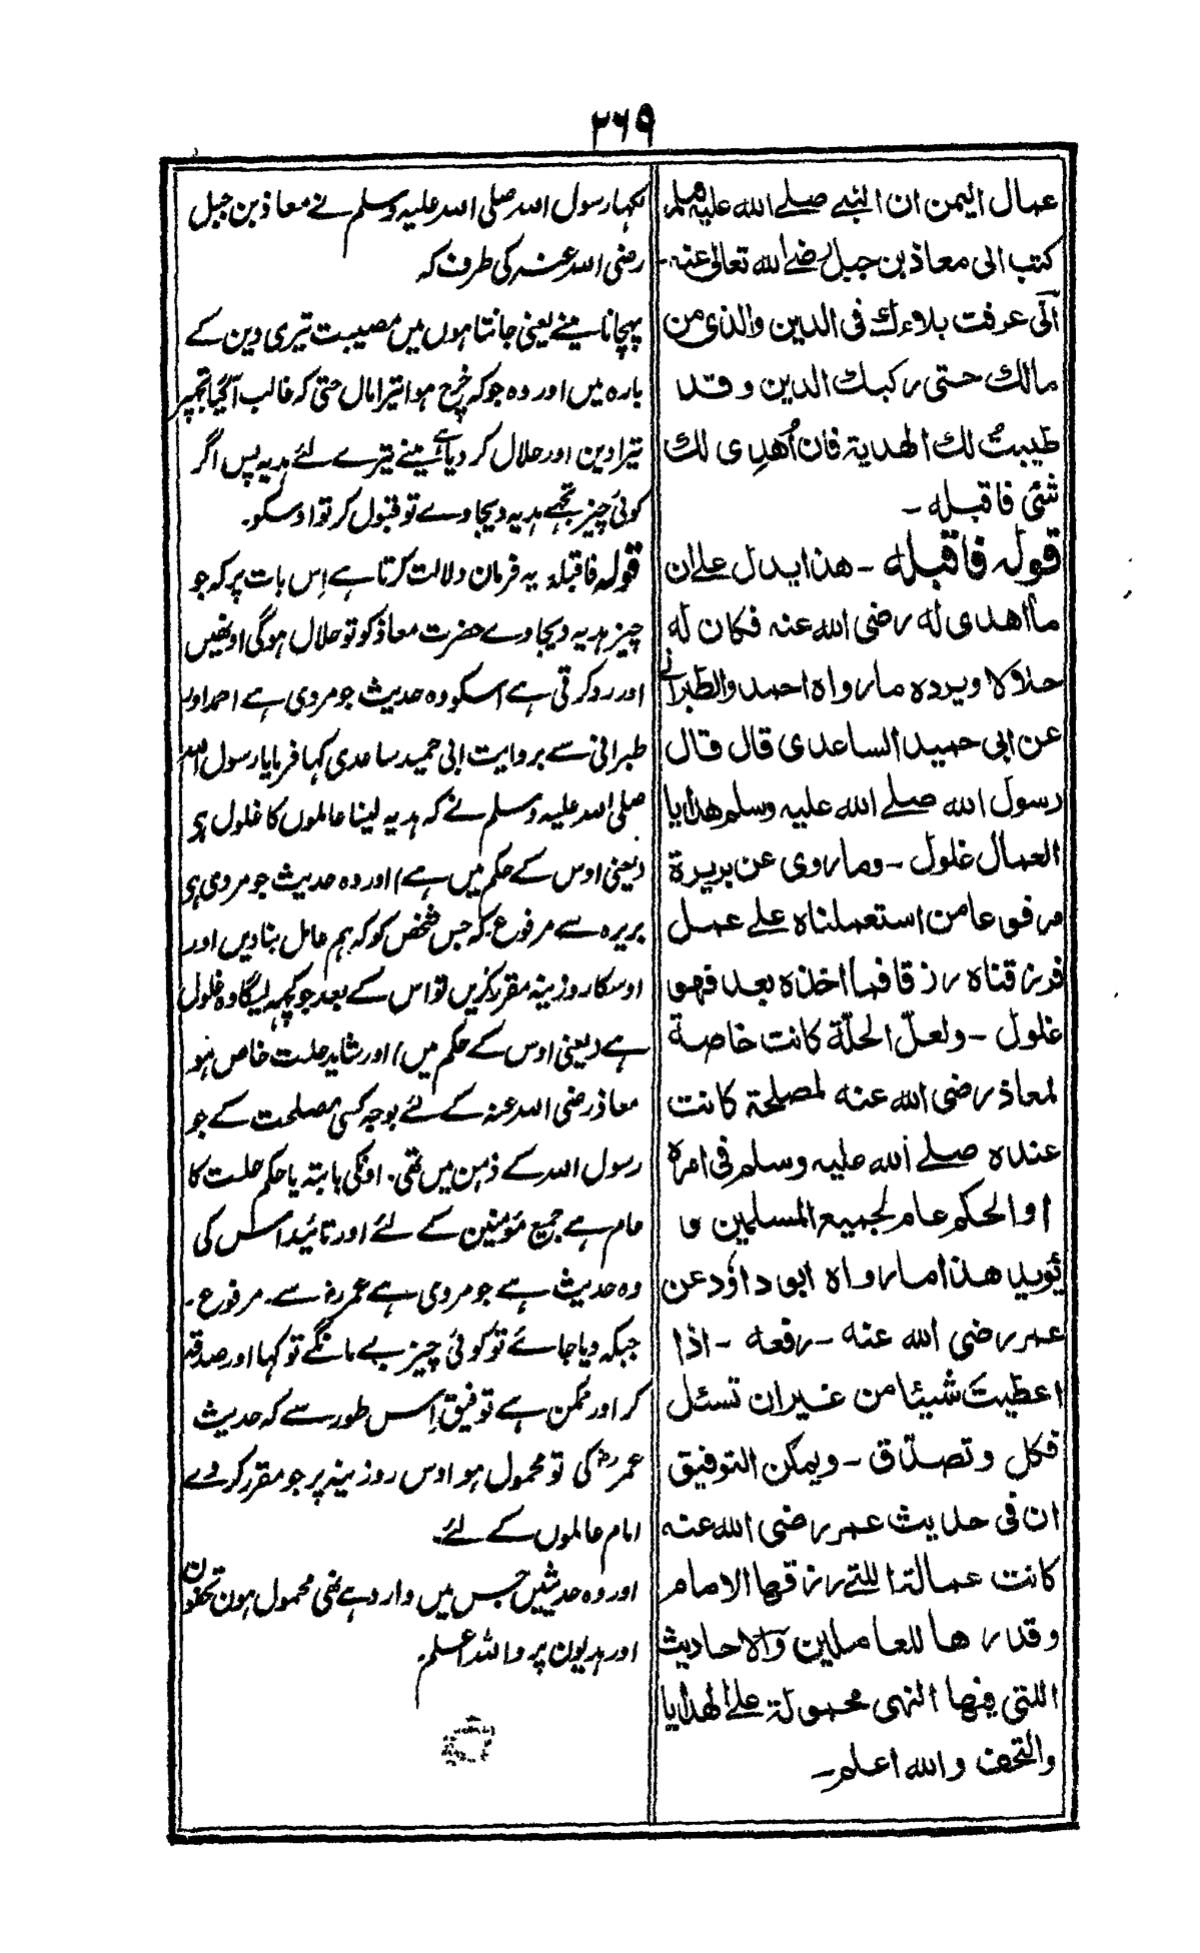 ۲۶۹
عمال الیمن ان النبی صلے اللہ علیہ وسلم
کتب الی معاذ بن جبل رضے اللہ تعالیٰ عنہ۔
انّی عرفت بلاءک فی الدین والذی من
مالک حتی رکبک الدین وقد
طیبتُ لک الھدیۃ فان اُھدِی لک
شئی فاقبلہ ۔
قولہ فاقبلہ ۔ ھذا یدل علے ان
ما اھدی لہ رضی اللہ عنہ فکان لہ
حلالا ویردہ ما رواہ احمد والطبرانی
عن ابی حمید الساعدی قال قال
رسول اللہ صلے اللہ علیہ وسلم ھدایا
العمال غلول ۔ وما روی عن بریرۃ
مرفوعا من استعملناہ علے عمل
فرزقناہ رزقا فما اخذہ بعد فھو
غلول ۔ ولعلّ الحلّۃ کانت خاصۃ
لمعاذ رضی اللہ عنہ لمصلحۃ کانت
عندہ صلے اللہ علیہ وسلم فی امرہ
او الحکم عام لجمیع المسلمین و
یُوید ھذا ما رواہ ابو داؤد عن
عمر رضی اللہ عنہ ۔ رفعہ ۔ اذا
اعطیتَ شیئا من غیر ان تسئل
فکل وتصدّق ۔ ویمکن التوفیق
ان فی حدیث عمر رضی اللہ عنہ
کانت عمالۃ اللتے رزقھا الامام
وقدرھا للعاملین والاحادیث
اللتی فیھا النہی محمولۃ علے الھدایا
والتحف واللہ اعلم ۔
لکہا رسول اللہ صلی اللہ علیہ وسلم نے معاذ بن جبل
رضی اللہ عنہ کی طرف کہ
پہچانا مینے یعنی جانتا ہوں میں مصیبت تیری دین کے
بارہ میں اور وہ جو کہ خرچ ہوا تیرا مال حتی کہ غالب آگیا تجھپر
تیرا دین اور حلال کر دیا ہے مینے تیرے لئے ہدیہ پس اگر
کوئی چیز تجھے ہدیہ دیجاوے تو قبول کر تو اوسکو۔
قولہ فاقبلہ یہ فرمان دلالت کرتا ہے اِس بات پر کہ جو
چیز ہدیہ دیجاوے حضرت معاذ کو تو حلال ہوگی اونھیں
اور رد کرتی ہے اسکو وہ حدیث جو مروی ہے احمد اور
طبرانی سے بروایت ابی حمید ساعدی کہا فرمایا رسول اللہ
صلی اللہ علیہ وسلم نے کہ ہدیہ لینا عاملوں کا غلول ہی
(یعنی اوس کے حکم میں ہے) اور وہ حدیث جو مروی ہی
بریرہ سے مرفوع کہ جس شخص کو کہ ہم عامل بنادیں اور
اوسکا روزینہ مقرر کریں تو اس کے بعد جو کچھ لیگا وہ غلول
ہے (یعنی اوس کے حکم میں) اور شاید حلت خاص ہو
معاذ رضی اللہ عنہ کے لئے بوجہ کسی مصلحت کے جو
رسول اللہ کے ذہن میں تھی۔ اونکی بابتہ یا حکم حلت کا
عام ہے جمیع مؤمنین کے لئے اور تائید اس کی
وہ حدیث ہے جو مروی ہے عمر رضہ سے۔ مرفوع۔
جبکہ دیا جائے تو کوئی چیز بے مانگے تو کہا اور صدقہ
کر اور ممکن ہے توفیق اِس طور سے کہ حدیث
عمر رضہ کی تو محمول ہو اوس روزینہ پر جو مقرر کر دے
امام عاملوں کے لئے۔
اور وہ حدیثیں جس میں وارد ہے نہی محمول ہون تحفون
اور ہدیون پر واللہ اعلم۔